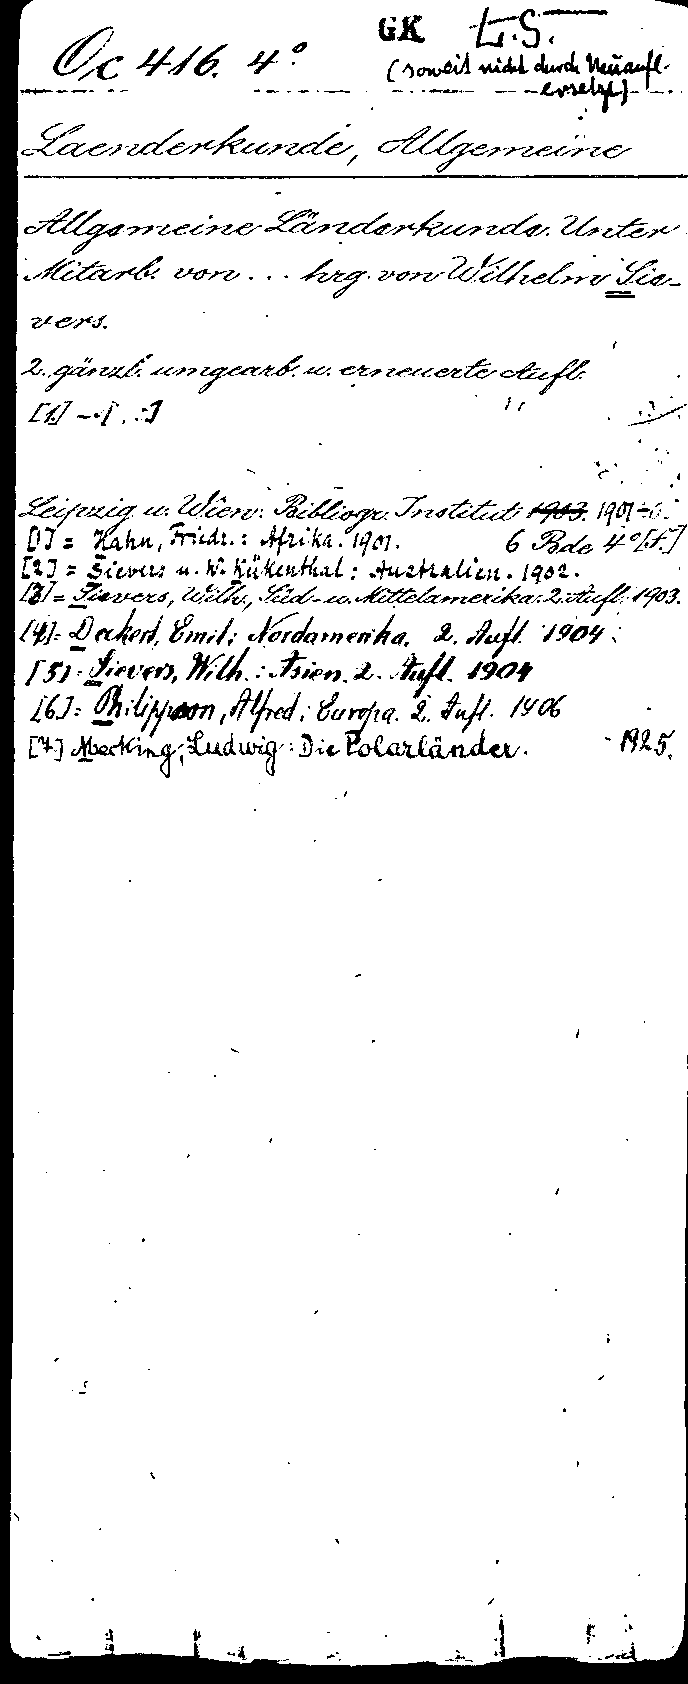 GK L.S.
Oc 416. 4°
(soweit nicht durch Neuaufl.
ersetzt)
Laenderkunde, Allgemeine
Allgemeine Länderkunde. Unter
Mitarb. von ... hrg. von Wilhelm Sie-
vers.
2. gänzl. umgearb. u. erneuerte Aufl.
[1.] –
Leipzig u. Wien: Bibliogr. Institut 1903. 1901-6.
[1] = Hahn, Friedr.: Afrika. 1901. 6 Bde 4°
[2] = Sievers u. W. Kükenthal: Australien. 1902.
[3] = Sievers, Wilh., Süd- u. Mittelamerika. 2. Aufl. 1903.
[4] = Deckert, Emil: Nordamerika. 2. Aufl. 1904
[5] = Sievers, Wilh.: Asien. 2. Aufl. 1904
[6] = Philippson, Alfred: Europa. 2. Aufl. 1906
[7] Mecking, Ludwig: Die Polarländer. 1925.